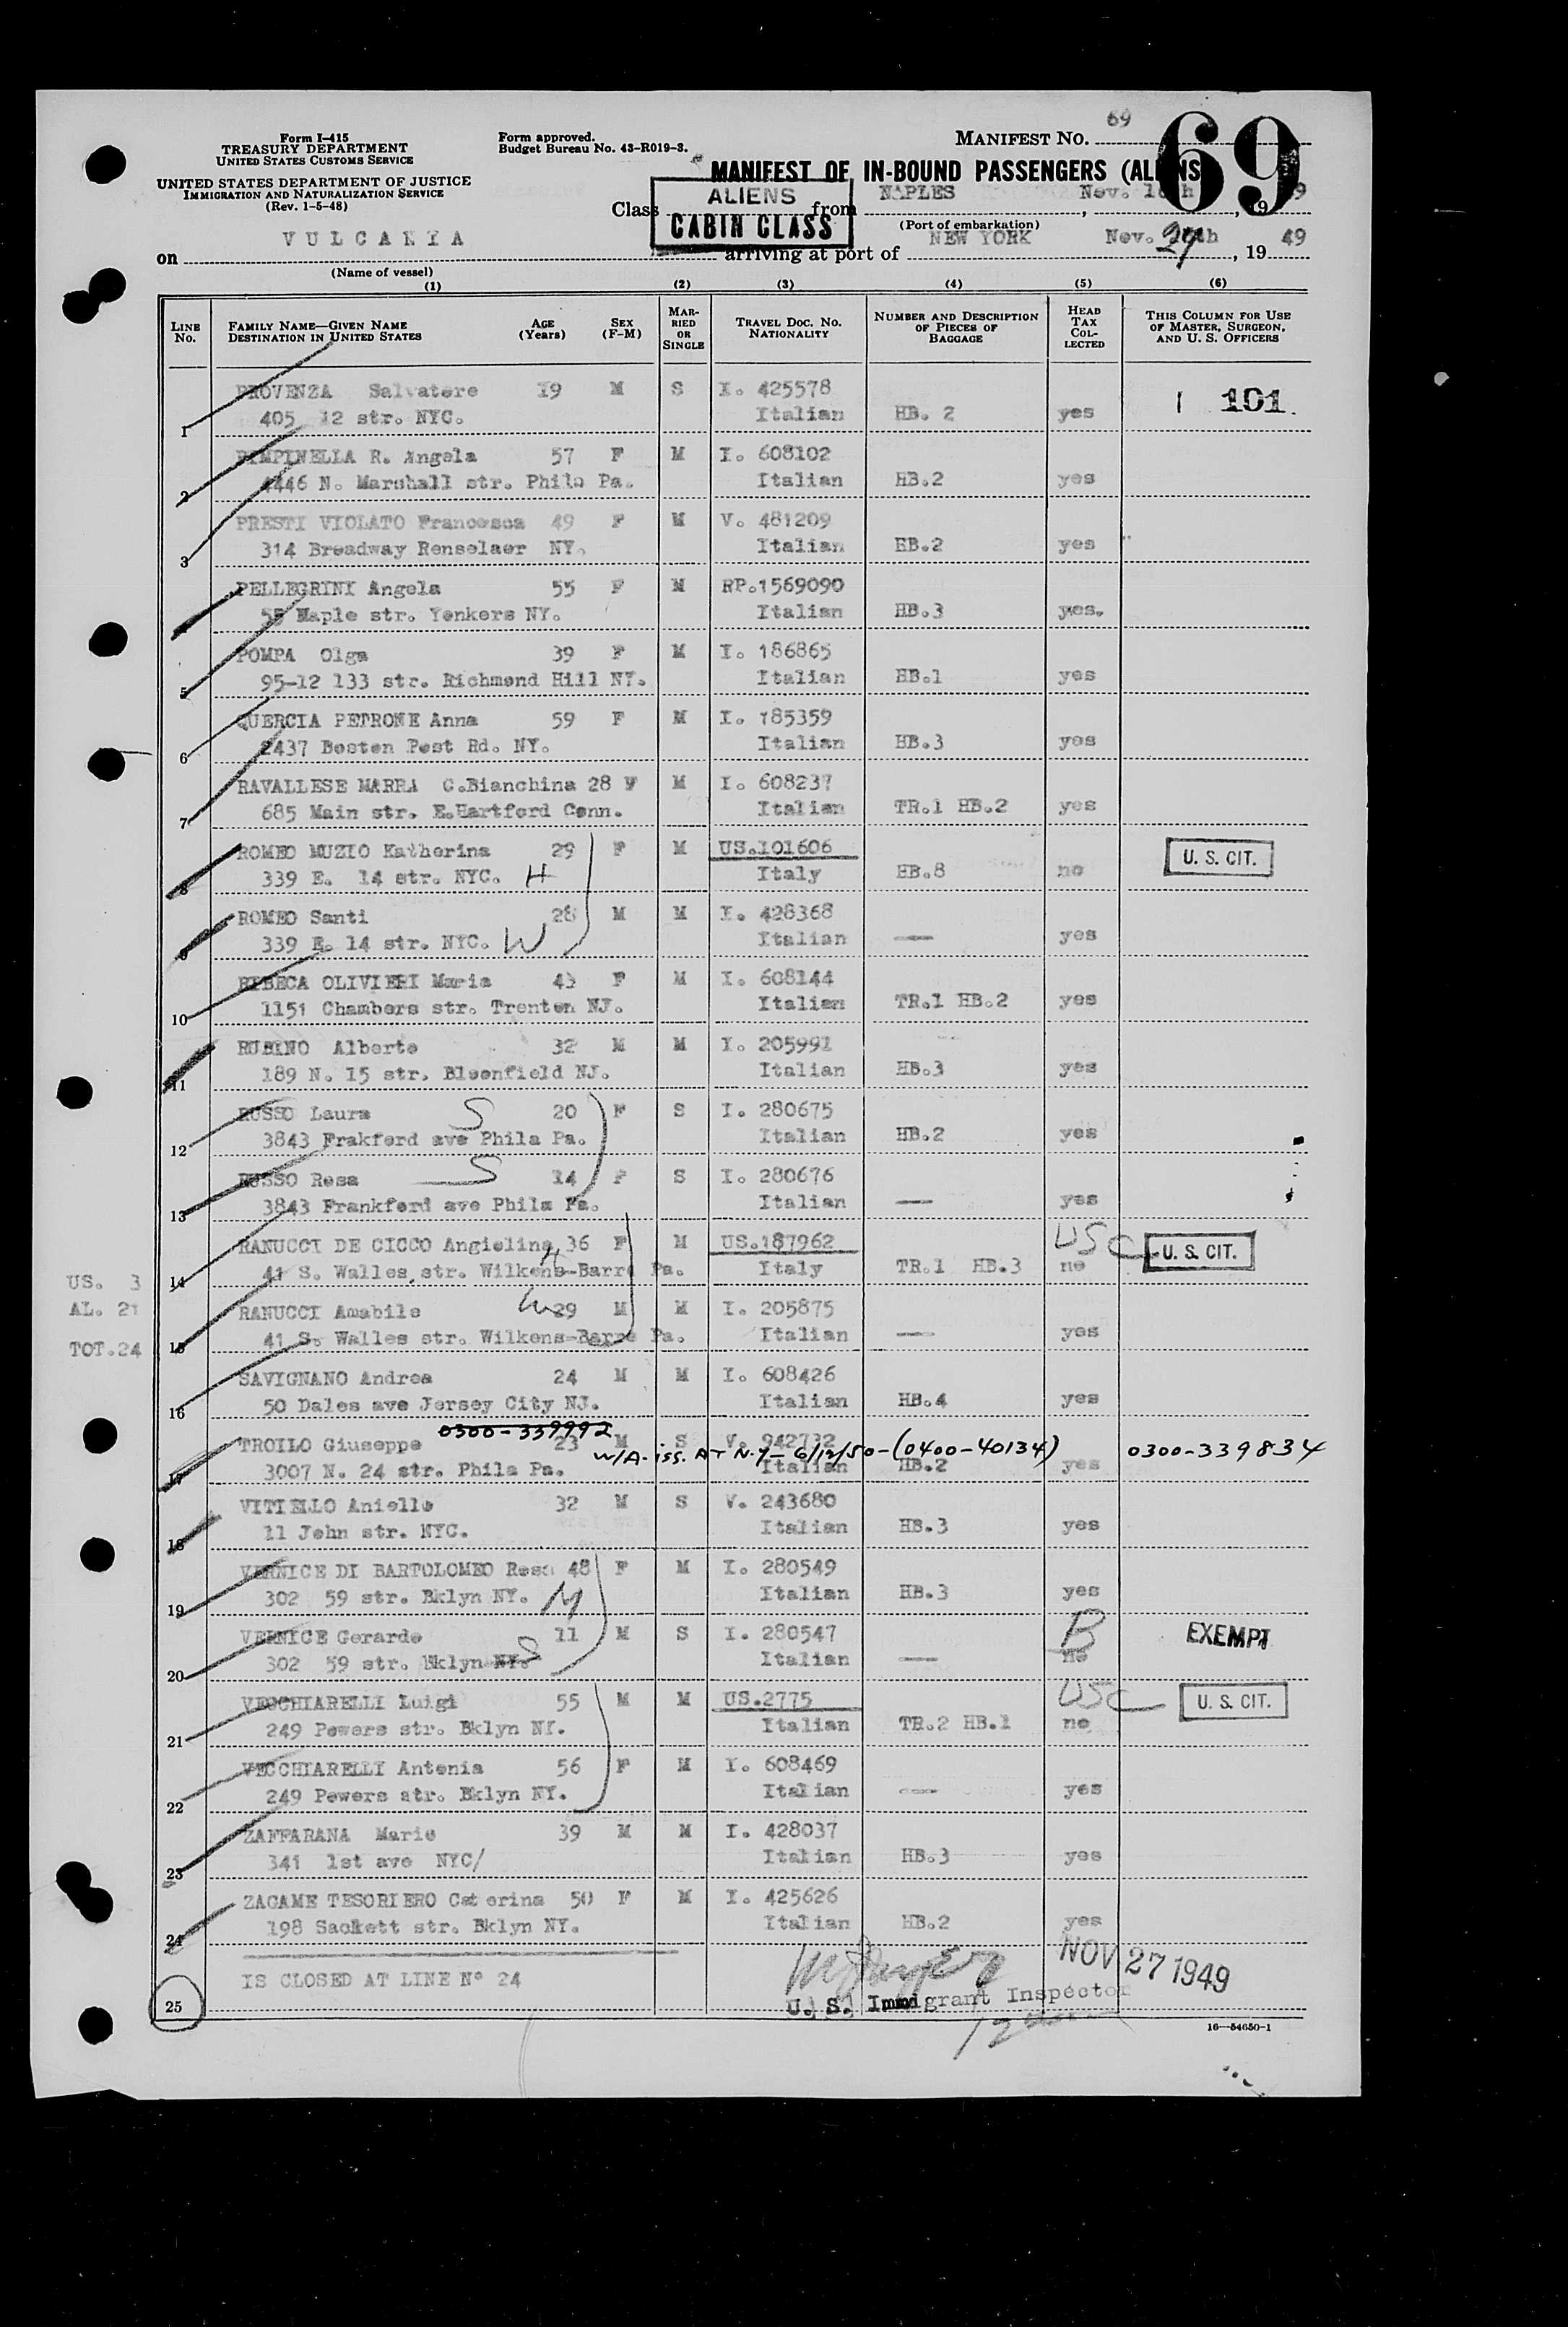 69
Form I-415
TREASURY DEPARTMENT
UNITED STATES CUSTOMS SERVICE
UNITED STATES DEPARTMENT OF JUSTICE
IMMIGRATION AND NATURALIZATION SERVICE
(Rev. 1-5-48)
Form approved.
Budget Bureau No. 43-R019-3.
MANIFEST NO. 69
MANIFEST OF IN-BOUND PASSENGERS (ALIENS
Class ALIENS CABIN CLASS from NAPLES Nov.
(Port of embarkation)
on VULCANIA arriving at port of NEW YORK Nov. 27 , 19 49
(Name of vessel)
(1) (2) (3) (4) (5) (6)
LINE No. FAMILY NAME—GIVEN NAME DESTINATION IN UNITED STATES AGE (Years) SEX (F-M) MARRIED OR SINGLE TRAVEL DOC. NO. NATIONALITY NUMBER AND DESCRIPTION OF PIECES OF BAGGAGE HEAD TAX COLLECTED THIS COLUMN FOR USE OF MASTER, SURGEON, AND U. S. OFFICERS
PROVENZA Salvatore 19 M S I. 425578 1 101
1 405 12 str. NYC. Italian HB. 2 yes
PIMPINELLA R. Angela 57 F M I. 608102
2 4446 N. Marshall str. Phila Pa. Italian HB.2 yes
PRESTI VIOLATO Francesca 49 F M V. 481209
3 314 Broadway Renselaer NY. Italian HB.2 yes
PELLEGRINI Angela 55 F M RP.1569090
4 55 Maple str. Yonkers NY. Italian HB.3 yes.
POMPA Olga 39 F M I. 186865
5 95-12 133 str. Richmond Hill NY. Italian HB.1 yes
QUERCIA PETRONE Anna 59 F M I. 185359
6 2437 Boston Post Rd. NY. Italian HB.3 yes
RAVALLESE MARRA C.Bianchina 28 F M I. 608237
7 685 Main str. E.Hartford Conn. Italian TR.1 HB.2 yes
ROMEO MUZIO Katherina 29 F M US.101606 U. S. CIT.
8 339 E. 14 str. NYC. H Italy HB.8 no
ROMEO Santi 28 M M I. 428368
9 339 E. 14 str. NYC. W Italian — yes
RIBECA OLIVIERI Maria 43 F M I. 608144
10 1151 Chambers str. Trenton NJ. Italian TR.1 HB.2 yes
RUBINO Alberto 32 M M I. 205991
11 189 N. 15 str. Bloonfield NJ. Italian HB.3 yes
RUSSO Laura S 20 F S I. 280675
12 3843 Frakford ave Phila Pa. Italian HB.2 yes
RUSSO Rosa S 14 F S I. 280676
13 3843 Frankford ave Phila Pa. Italian — yes
RANUCCI DE CICCO Angielina 36 F M US.187962 USC U. S. CIT.
14 41 S. Walles str. Wilkens-Barre Pa. H Italy TR.1 HB.3 no
US. 3
AL. 21
TOT.24
RANUCCI Amabile W 29 M M I. 205875
15 41 S. Walles str. Wilkens-Barre Pa. Italian — yes
SAVIGNANO Andrea 24 M M I. 608426
16 50 Dales ave Jersey City NJ. Italian HB.4 yes
0300-339992
TROILO Giuseppe 23 M S V. 942732
W/A. iss. AT N.Y— 6/12/50-(0400-40134) 0300-339834
17 3007 N. 24 str. Phila Pa. Italian HB.2 yes
VITIELLO Aniello 32 M S V. 243680
18 11 John str. NYC. Italian HB.3 yes
VERNICE DI BARTOLOMEO Rosa 48 F M I. 280549
19 302 59 str. Bklyn NY. M Italian HB.3 yes
VERNICE Gerardo 11 M S I. 280547 B EXEMPT
20 302 59 str. Bklyn NY. S Italian — no
VECCHIARELLI Luigi 55 M M US.2775 USC U. S. CIT.
21 249 Powers str. Bklyn NY. Italian TR.2 HB.1 no
VECCHIARELLI Antonia 56 F M I. 608469
22 249 Powers str. Bklyn NY. Italian — yes
ZAFFARANA Mario 39 M M I. 428037
23 341 1st ave NYC/ Italian HB.3 yes
ZAGAME TESORIERO Caterina 50 F M I. 425626
24 198 Sackett str. Bklyn NY. Italian HB.2 yes
IS CLOSED AT LINE Nº 24
25
NOV 27 1949
U. S. Immigrant Inspector
16—54650-1